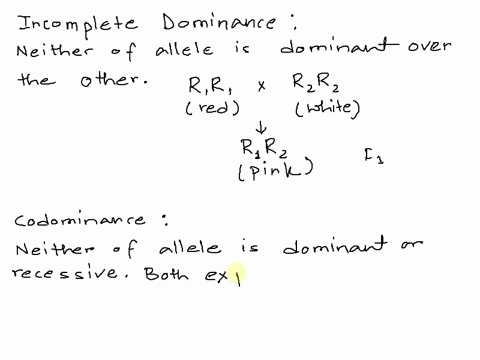 Incomplete Dominance :
Neither of allele is dominant over
the other. R₁R₁ × R₂R₂
(red) (white)
↓
R₁R₂
(pink)
Codominance :
Neither of allele is dominant or
recessive. Both